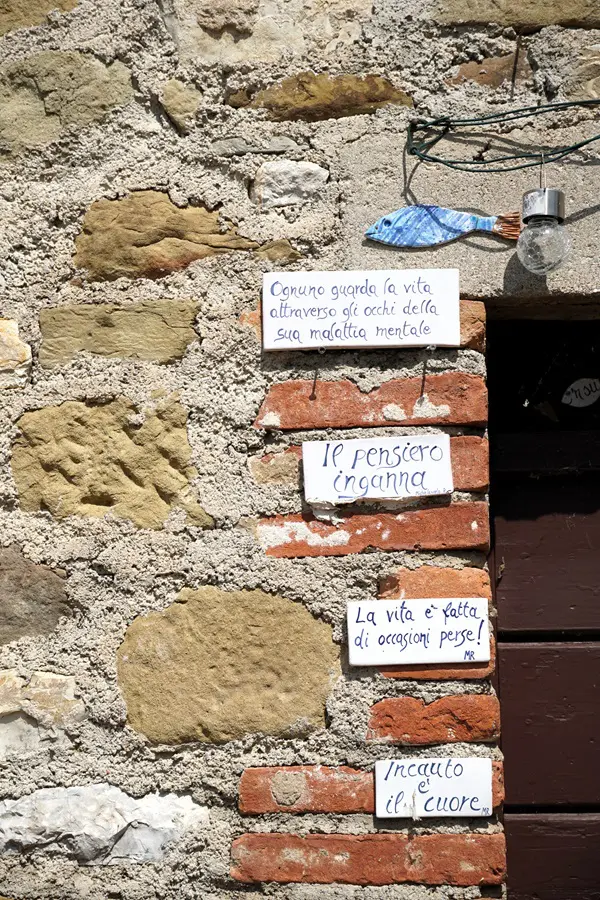 Ognuno guarda la vita
attraverso gli occhi della
sua malattia mentale
Il pensiero
inganna
La vita è fatta
di occasioni perse!
MR
Incauto
è
il cuore
MR